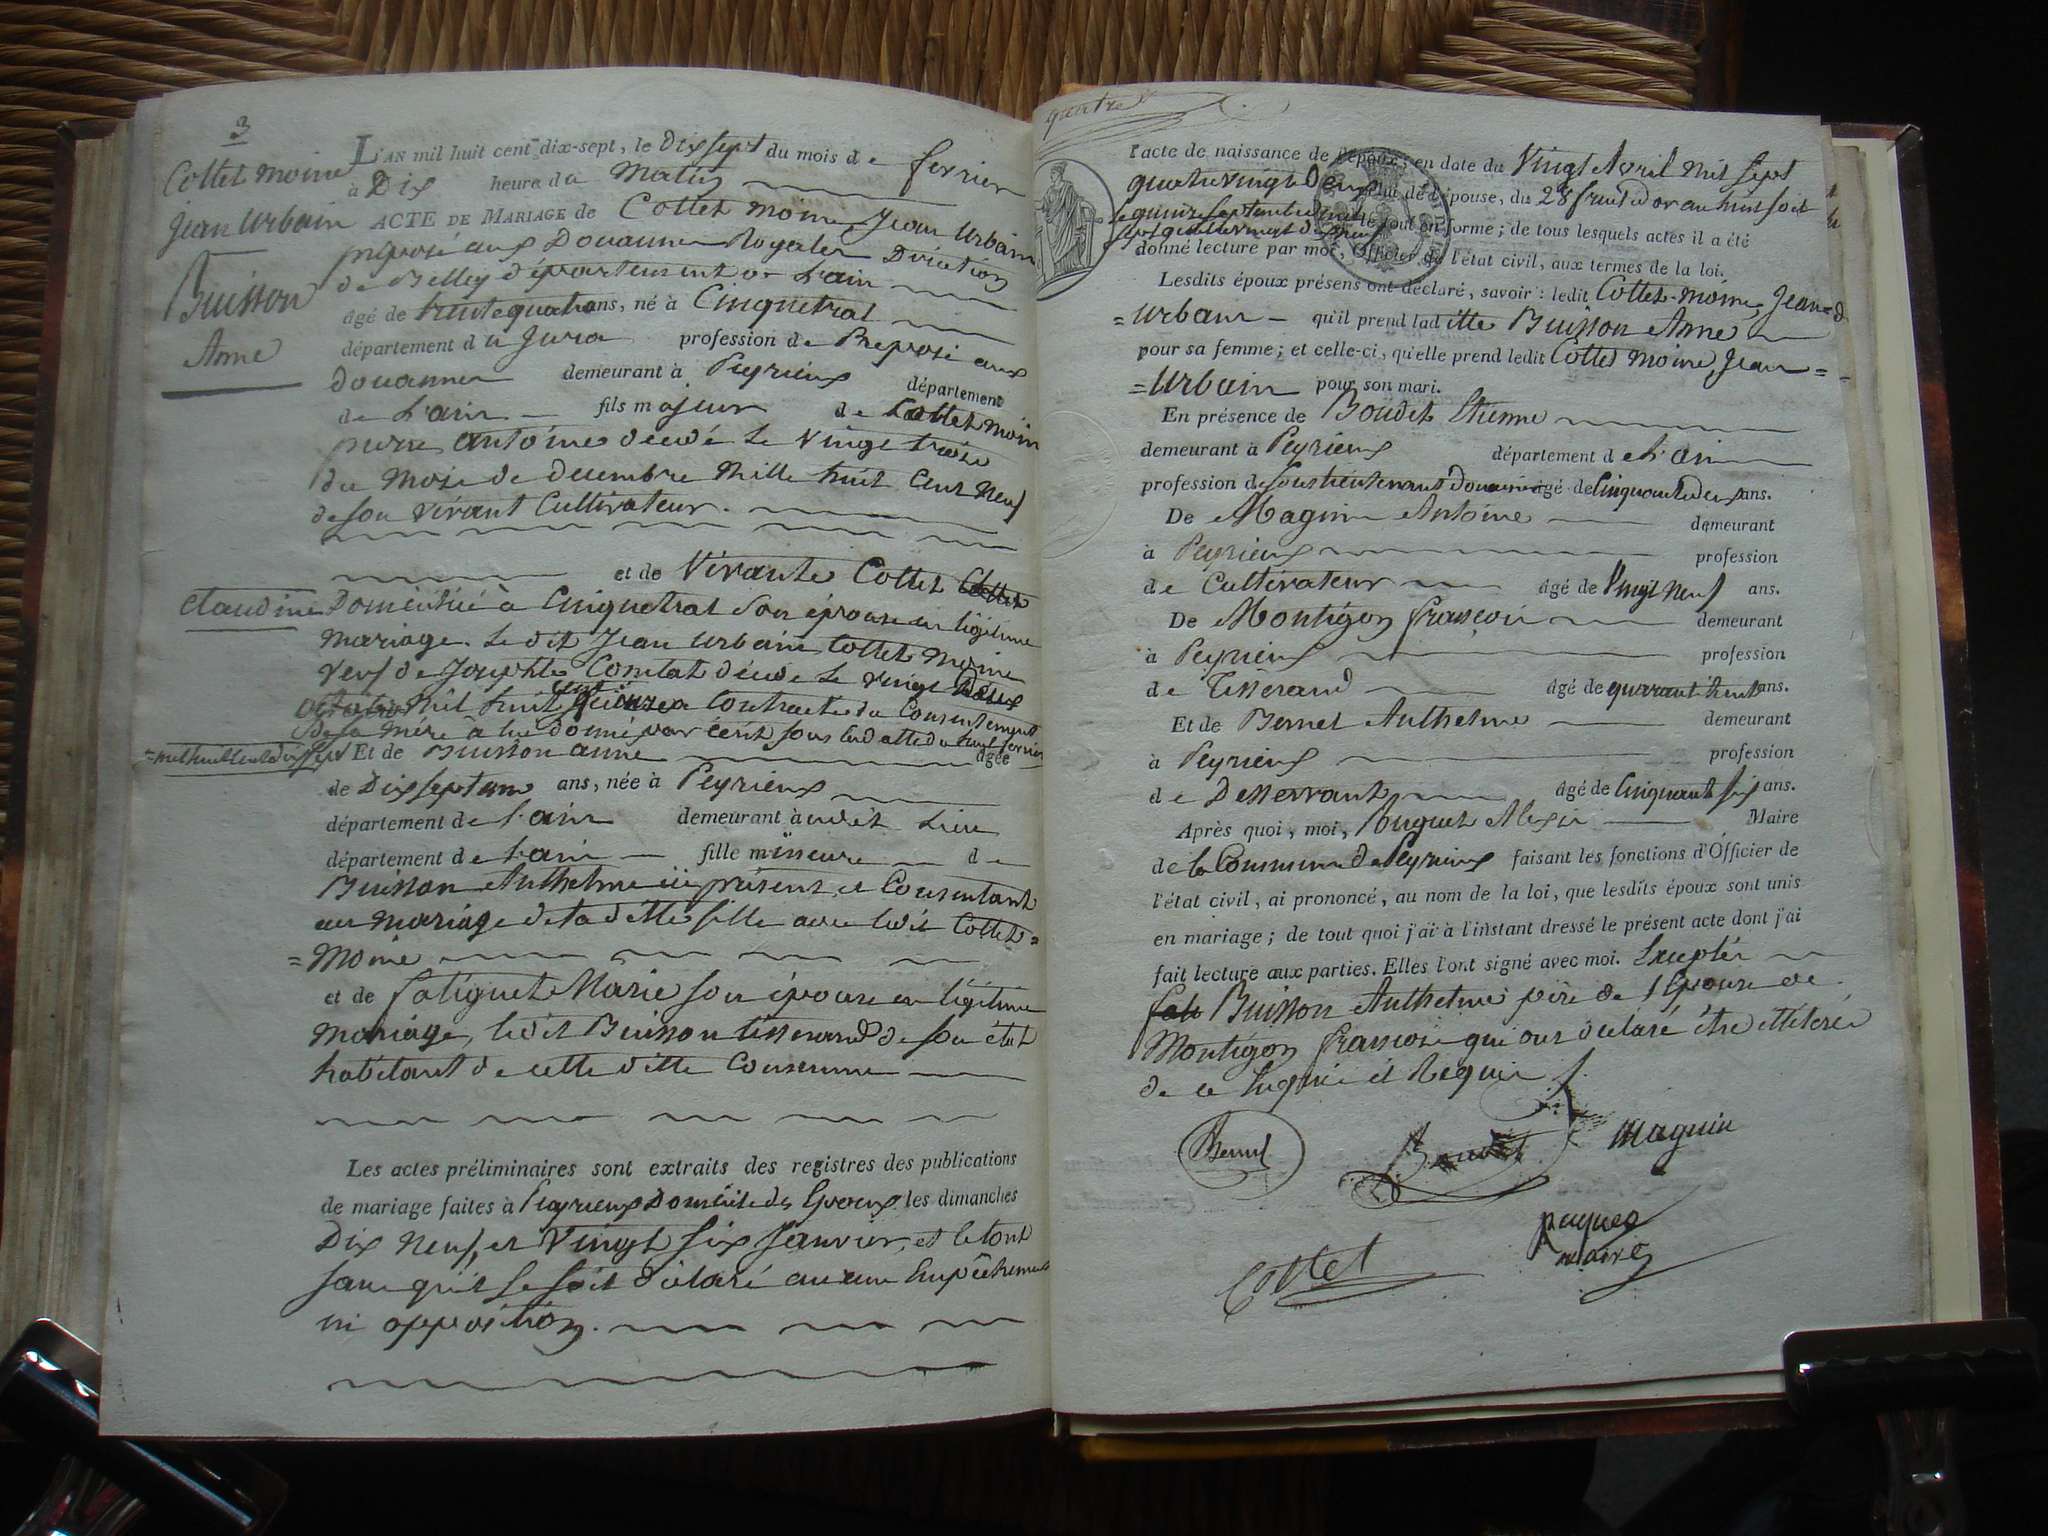 3
Collet moine
Jean Urbain
Buisson
Anne
L'AN mil huit cent dix-sept, le Dix sept du mois de fevrier
à Dix heure du Matin
ACTE DE MARIAGE de Collet moine Jean Urbain
préposé aux Douannes Royales Direction
de Belley département de L'ain
âgé de trente quatre ans, né à Cinquetral
département du Jura profession de Preposé aux
douannes demeurant à Peyrieux département
de L'ain fils majeur de Collet moin
pierre antoine décédé le vingt trois
du Mois de decembre Mille huit Cent Neuf
de son vivant Cultivateur.
et de Vivante Collet
Claudine Domiciliée à Cinquetral son épouse en légitime
mariage. Le dit Jean Urbain Collet Moine
veuf de Josephte Comtat décédé le vingt Deux
octobre Mil huit cent quinze a Contracté du Consentement
de sa mère à lui donné par écrit sous la datte du huit fevrier
=mil huit cent dix sept Et de Buisson anne âgée
de Dix sept ans, née à Peyrieux
département de l'ain demeurant audit Lieu
département de L'ain fille mineure de
Buisson Anthelme ici présent et Consentant
au mariage de sa ditte fille avec ledit Collet=
=Moine
et de fatiguet Marie son épouse en légitime
mariage, ledit Buisson tisserand de son état
habitant de cette ditte Commune
Les actes préliminaires sont extraits des registres des publications
de mariage faites à Peyrieux Domicile des Epoux les dimanches
Dix Neuf, et Vingt six Janvier, et le tout
sans qu'il se soit déclaré aucun Empêchement
ni opposition.
quatre
l'acte de naissance de l'époux, en date du Vingt Avril Mil sept
quatre vingt Deux celui de l'épouse, du 28 fructidor an huit soit
le quinze septembre mil
le tout en forme; de tous lesquels actes il a été
donné lecture par moi, Officier de l'état civil, aux termes de la loi.
Lesdits époux présens ont déclaré, savoir: ledit Collet-moine, Jean=
=Urbain qu'il prend ladite Buisson Anne
pour sa femme; et celle-ci, qu'elle prend ledit Collet Moine, Jean=
=Urbain pour son mari.
En présence de Boudet Etienne
demeurant à Peyrieux département de L'ain
profession de sous lieutenant Douanes âgé de Cinquante deux ans.
De Magnin Antoine demeurant
à Peyrieux profession
de Cultivateur âgé de Vingt neuf ans.
De Montigon françois demeurant
à Peyrieux profession
de Tisserand âgé de quarant huit ans.
Et de Bernet Anthelme demeurant
à Peyrieux profession
de Desservant âgé de Cinquant six ans.
Après quoi, moi, Puguet Alexis Maire
de la Commune de Peyrieux faisant les fonctions d'Officier de
l'état civil, ai prononcé, au nom de la loi, que lesdits époux sont unis
en mariage; de tout quoi j'ai à l'instant dressé le présent acte dont j'ai
fait lecture aux parties. Elles l'ont signé avec moi. Exceptés
Buisson Anthelme père de l'Epouse et
Montigon françois qui ont déclaré être illitérés
de ce Enquis et Requis
Bernet
Boudet
Magnin
Collet
maire